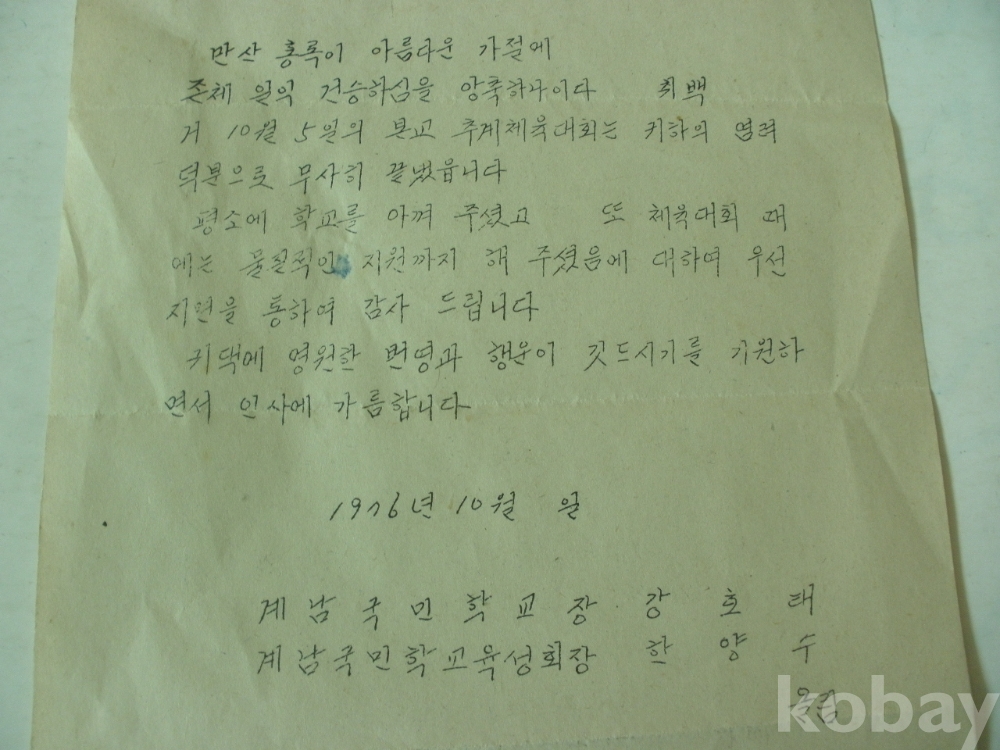 만산 홍록이 아름다운 가절에
존체 일익 건승하심을 앙축하나이다 취백
거 10월 5일의 본교 추계체육대회는 귀하의 염려
덕분으로 무사히 끝냈읍니다
평소에 학교를 아껴 주셨고 또 체육대회 때
에는 물질적인 지원까지 해 주셨음에 대하여 우선
지면을 통하여 감사 드립니다
귀댁에 영원한 번영과 행운이 깃드시기를 기원하
면서 인사에 가름합니다
1976년 10월 일
계남국민학교장 강호태
계남국민학교육성회장 한양수
올림
kobay